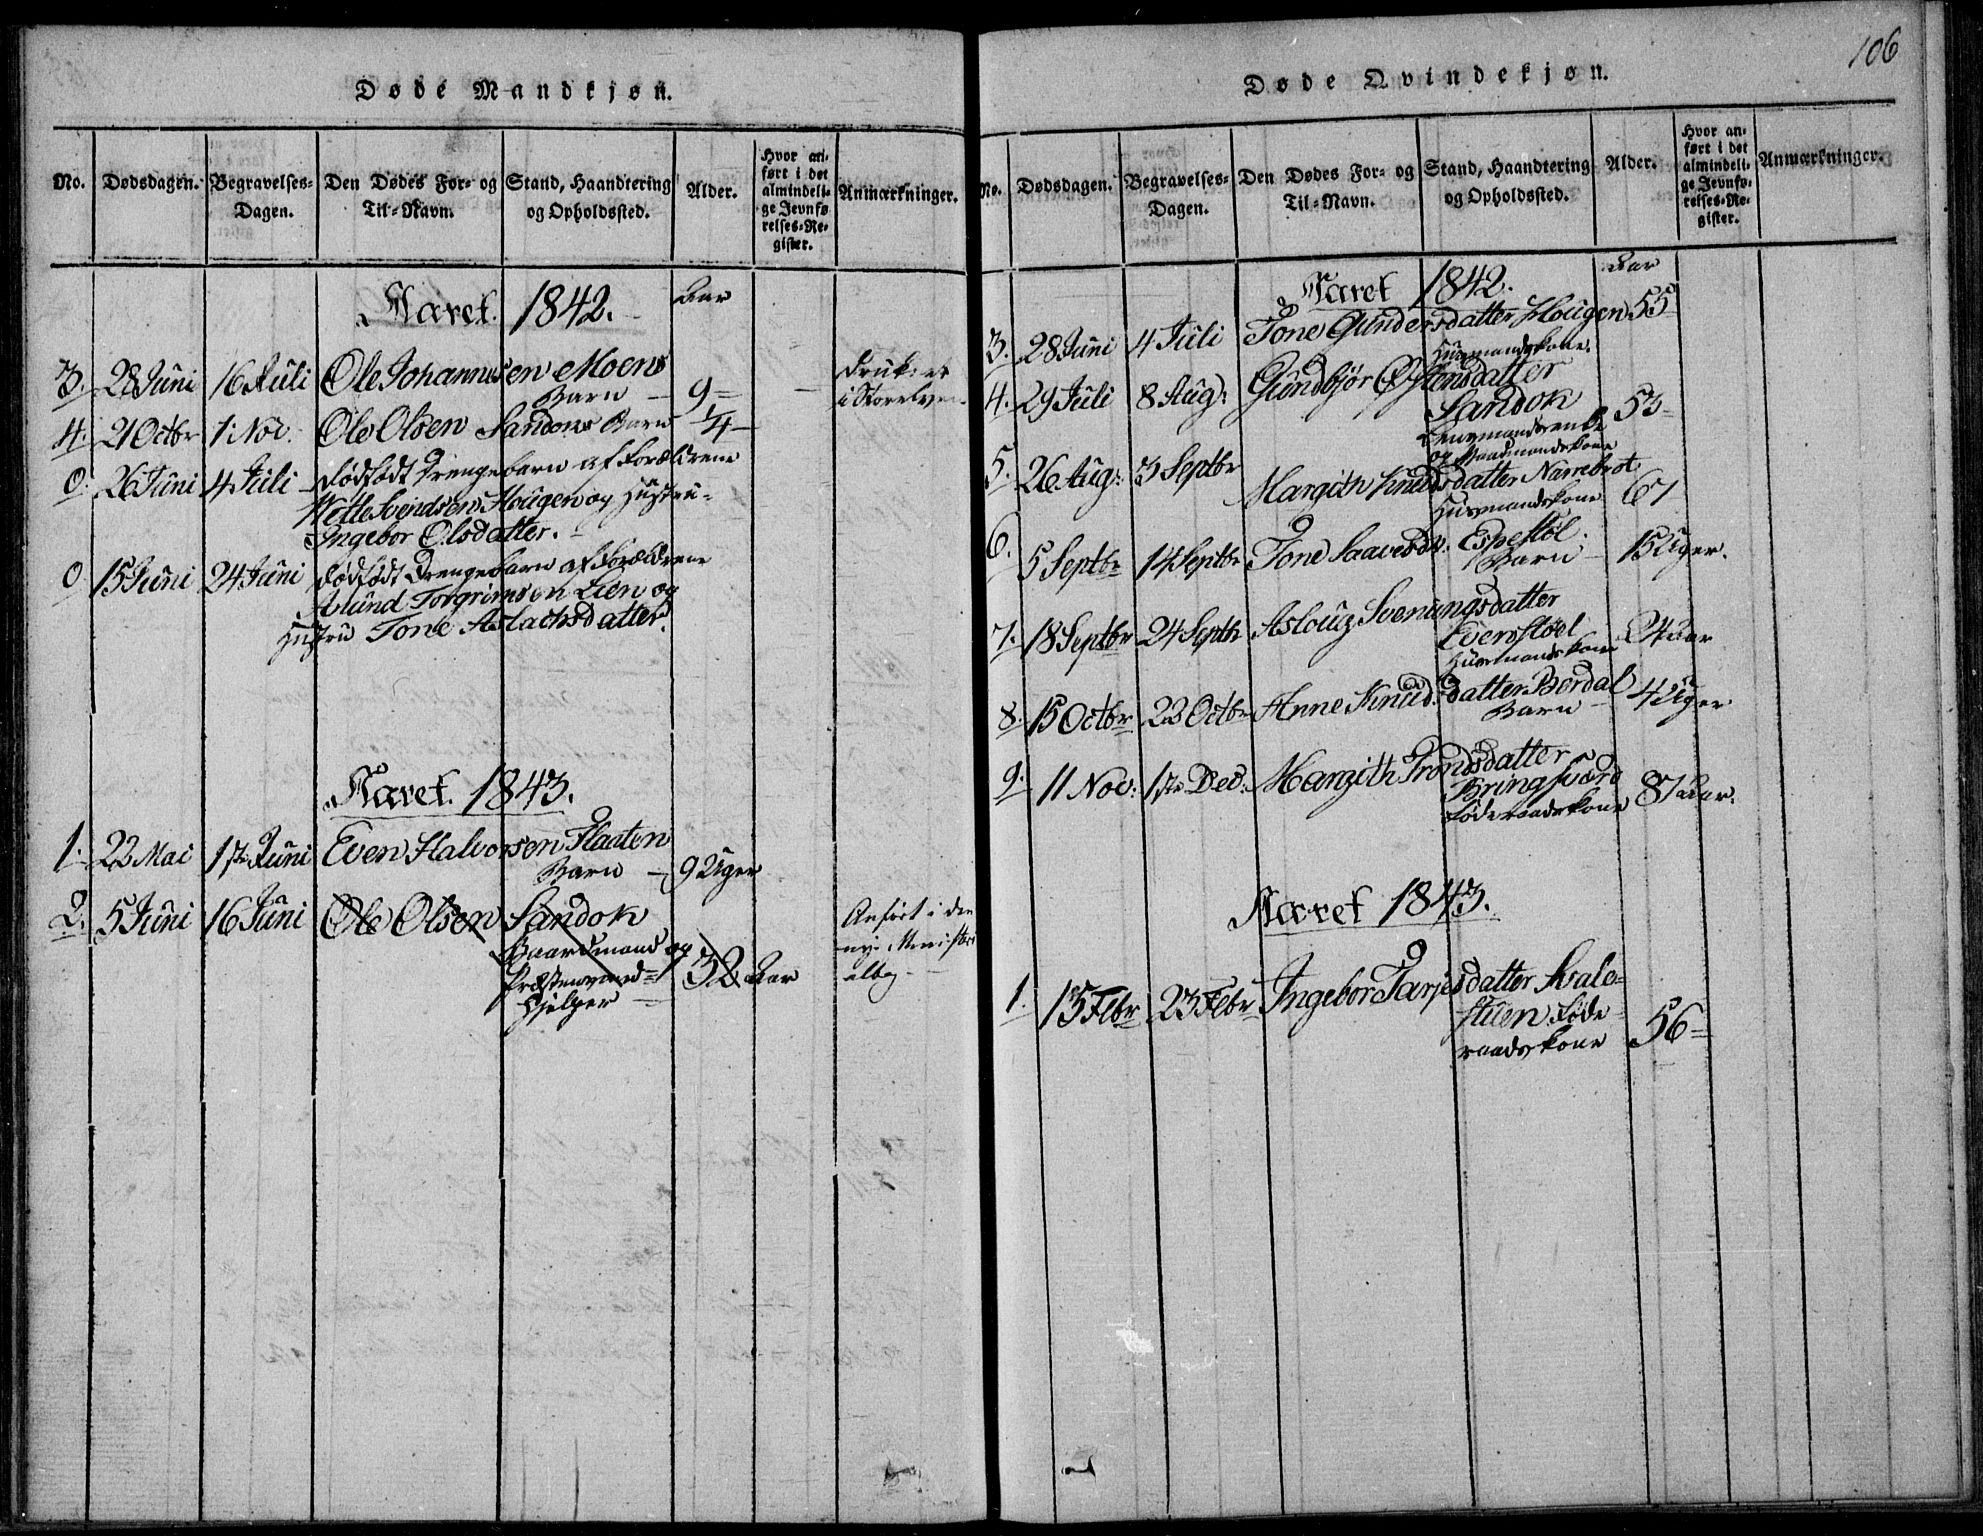 Døde Mandkjøn.
No. Dødsdagen. Begravelses-Dagen. Den Dødes For- og Til-Navn. Stand, Haandtering og Opholdssted. Alder. Hvor anført i det almindelige Jevnførelses-Register. Anmærkninger.
Aaret 1842. Aar
3. 28 Juni 16 Juli Ole Johannesen Moens
Barn 9 =
Druknet
i Storelven
4. 21 Octbr 1 Nov: Ole Olsen Sandons Barn 1/4
0. 26 Juni 4 Juli dødfødt Drengebarn af Forældrene
Wetle Svendsen Hougen og Hustru
Ingebor Olsdatter.
0. 15 Juni 24 Juni dødfødt Drengebarn af Forældrene
Amund Torgrimsen Lien og
Hustru Tone Aslachsdatter.
Aaret 1843.
1. 23 Mai 1ste Juni Even Halvorsen Flaaten
Barn 9 Uger
2. 5 Juni 16 Juni Ole Olsen Sandok
Gaardmand og
Præstens
Hjelper 32 Aar
Anført i den
nye Ministeri
albog
106
Døde Qvindekjøn.
No. Dødsdagen. Begravelses-Dagen. Den Dødes For- og Til-Navn. Stand, Haandtering og Opholdssted. Alder. Hvor anført i det almindelige Jevnførelses-Register. Anmærkninger.
Aaret 1842. Aar
3. 28 Juni 4 Juli Tone Gundersdatter Hougen 55
Husmandskone.
4. 29 Juli 8 Aug: Gundbjør Østensdatter
Sandok 53
Lensmandsenke
og Gaardmandskone
5. 26 Aug: 3 Septbr Margith Knudsdatter Narrebrot
Husmandskone 67
6. 5 Septbr 14 Septbr Tone Saavesdr. Espestøl.
Barn 15 Uger.
7. 18 Septbr 24 Septbr Asloug Svenungsdatter
Eversstøel
Husmandskone 24 Aar
8. 15 Octbr 23 Octbr Anne Knudsdatter Bordal
Barn 4 Uger
9. 11 Nov: 1ste Dec: Margith Trondsdatter
Bringsværd
Føderaadskone 87 Aar.
Aaret 1843.
1. 15 Febr 23 Febr Ingebor Tarjesdatter Svale-
stuen Føde-
raadskone 56 =